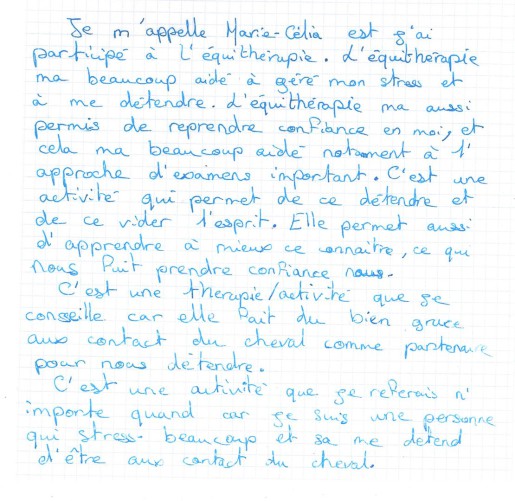 Je m'appelle Marie-Célia est j'ai
participé à l'équithérapie. L'équithérapie
ma beaucoup aidé à géré mon stress et
à me détendre. L'équithérapie ma aussi
permis de reprendre confiance en moi, et
cela ma beaucoup aidé notament à l'
approche d'examens important. C'est une
activité qui permet de ce détendre et
de ce vider l'esprit. Elle permet aussi
d'apprendre à mieux ce connaitre, ce qui
nous fait prendre confiance nous.
C'est une thérapie/activité que je
conseille car elle fait du bien grace
aux contact du cheval comme partenaire
pour nous détendre.
C'est une activité que je referais n'
importe quand car je suis une personne
qui stress beaucoup et sa me détend
d'être aux contact du cheval.